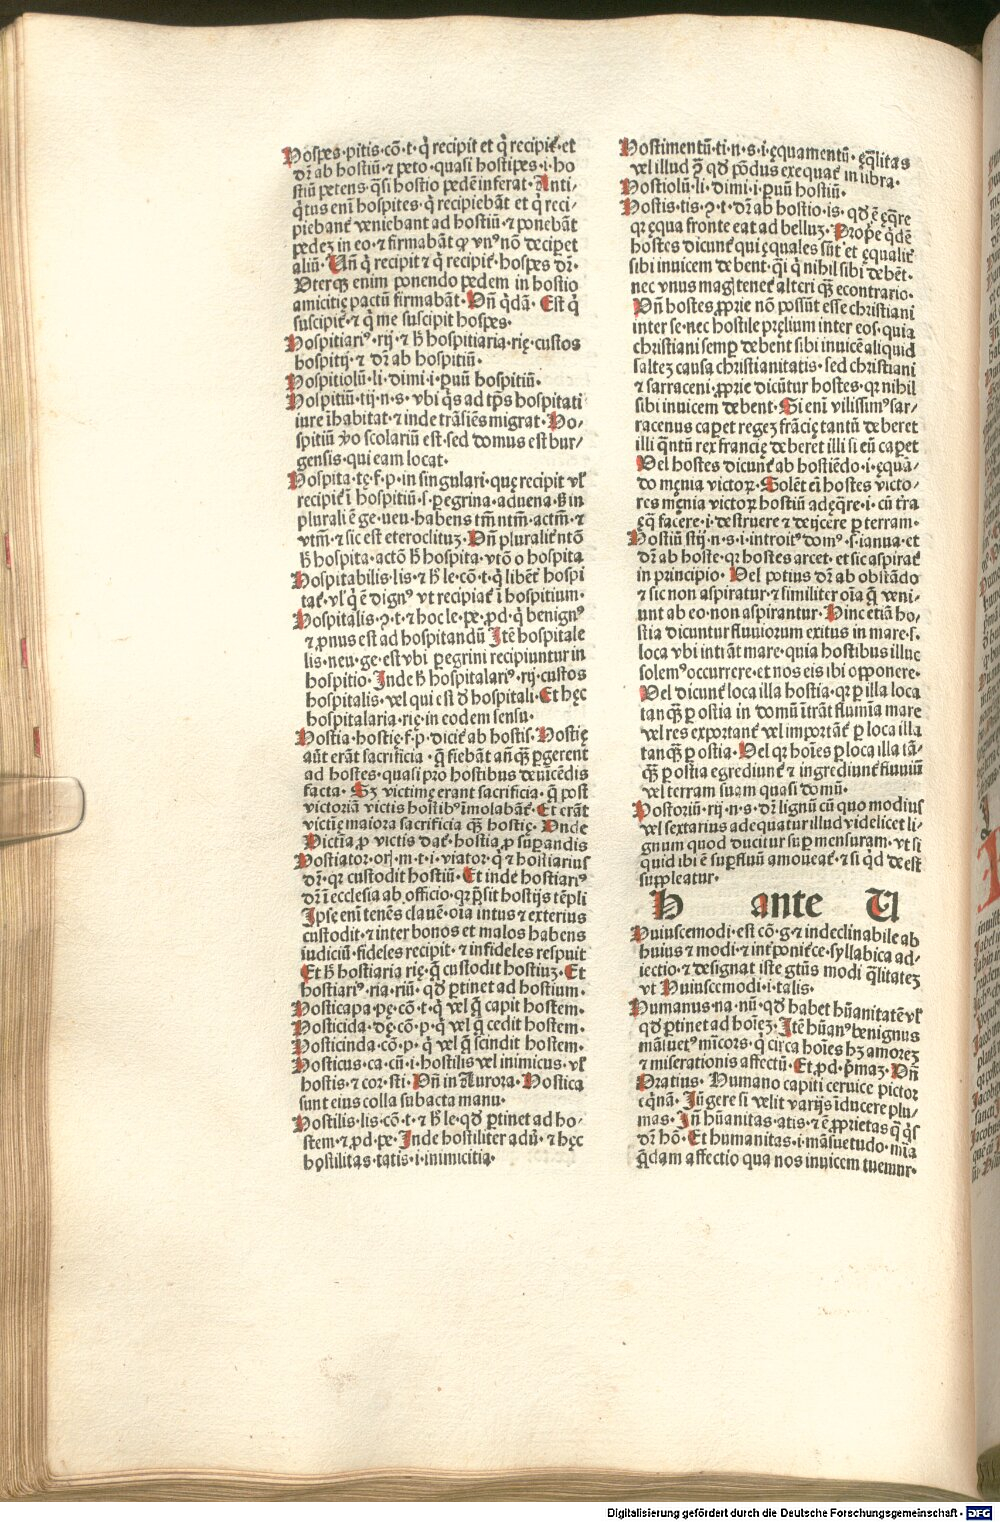 Hospes·pitis·cō·t·q̇ recipit et q̇ recipiť·et
dr̄ ab hostiū·⁊ peto·quasi hostipes·i·ho
stiū petens·q̄si hostio pedē inferat·Anti/
q̇tus enī hospites·q̇ recipiebāt et q̇ reci/
piebanť veniebant ad hostiū·⁊ ponebāt
pedeꝫ in eo·⁊ firmabāt ꝙ vnꝰ nō deciꝑet
aliū·Añ q̇ recipit ⁊ q̇ recipiť·hospes dr̄·
Vterqꝫ enim ponendo pedem in hostio
amicitię pactū firmabāt·Vñ q̇dā·Est q̇
suscipiť·⁊ q̇ me suscipit hospes·
Hospitiariꝰ·rij·⁊ h̄ hospitiaria·rię·custos
hospitij·⁊ dr̄ ab hospitiū·
Hospitiolū·li·dimi·i·ꝑuū hospitiū·
Hospitiū·tij·n·s·vbi q̇s ad tp̄s hospitati
iure īhabitat·⁊ inde trāsiēs migrat·Ho/
spitiū ꝟo scolariū est·sed domus est bur/
gensis·qui eam locat·
Hospita·tę·f·p·in singulari·quę recipit vł
recipiť ī hospitiū·s·ꝑegrina·aduena·S̄ in
plurali ē ge·neu·habens tm̄ ntm̄·actm̄·⁊
vtm̄·⁊ sic est eteroclituꝫ·Vñ pluraliť ntō
h̄ hospita·actō h̄ hospita·vtō o hospita
Hospitabilis·lis·⁊ h̄ le·cō·t·q̇ libēť hospi
tať·vł q̇ ē dignꝰ vt recipiať ī hospitium·
Hospitalis·ꝯ·t·⁊ hoc le·pe·ꝓd·q̇ benignꝰ
⁊ ꝓnus est ad hospitandū Itē hospitale
lis·neu·ge·est vbi ꝑegrini recipiuntur in
hospitio·Inde h̄ hospitalariꝰ·rij·custos
hospitalis·vel qui est ď hospitali·Et hęc
hospitalaria·rię·in eodem sensu·
Hostia·hostię·f·p·diciť ab hostis·Hostię
aūt erāt sacrificia·q̄ fiebāt añ qꝫ̄ ꝑgerent
ad hostes·quasi pro hostibus deuicēdis
facta·Sꝫ victimę erant sacrificia·q̄ post
victoriā victis hostibꝰ īmolabāť·Et erāt
victię maiora sacrificia qꝫ̄ hostię·Vnde
Victīa ꝓ victis dať·hostia ꝓ suꝑandis
Hostiator·orꝭ·m·t·i·viator·q̇ ⁊ hostiarius
dr̄·qꝛ custodit hostiū·Et inde hostiariꝰ
dr̄ ī ecclesia ab officio·qꝛ p̄sit hostijs tēpli
Ipse enī tenēs clauē·oīa intus ⁊ exterius
custodit·⁊ inter bonos et malos habens
iudiciū·fideles recipit·⁊ infideles respuit
Et h̄ hostiaria rię·q̄ custodit hostiuꝫ·Et
hostiariꝰ·ria·riū·qď ꝑtinet ad hostium·
Hosticapa·pę·cō·t·q̇ vel q̄ capit hostem·
Hosticida·dę·cō·p·q̇ vel q̄ cedit hostem·
Hosticinda·cō·p·q̇ vel q̄ scindit hostem·
Hosticus·ca·cū·i·hostilis vel inimicus·vł
hostis·⁊ cor·sti·Vñ in Aurora·Hostica
sunt eius colla subacta manu·
Hostilis·lis·cō·t·⁊ h̄ le·qď ꝑtinet ad ho/
stem·⁊ ꝓd·pe·Inde hostiliter adū·⁊ hęc
hostilitas·tatis·i·inimicitia·
Hostimentū·ti·n·s·i·ęquamentū·ęq̄litas
vel illud ꝗ̄ qď pōdus exequať in libra·
Hostiolū·li·dimi·i·ꝑuū hostiū·
Hostis·tis·ꝯ·t·dr̄ ab hostio·is·qď ē ęq̄re
qꝛ ęqua fronte eat ad belluꝫ·Propē q̇dē
hostes dicunť qui ęquales sūt et ęqualiť
sibi inuicem debent·q̄i q̇ nihil sibi debēt·
nec vnus mag̃ teneť alteri qꝫ̄ econtrario·
Vñ hostes ꝓprie nō possūt esse christiani
inter se·nec hostile pręlium inter eos·quia
christiani semꝑ debent sibi inuicē aliquid
salteꝫ causa christianitatis·sed christiani
⁊ sarraceni ꝓprie dicūtur hostes·qꝛ nihil
sibi inuicem debent·Si enī vilissimꝰ sar/
racenus caꝑet regeꝫ frācię tantū deberet
illi q̄ntū rex francię deberet illi si eū caꝑet
Vel hostes dicunť ab hostiēdo·i·ęqua/
do męnia victoꝝ·Solēt eī hostes victo/
res męnia victoꝝ hostiū adęq̄re·i·cū tr̄a
ęq̄ facere·i·destruere ⁊ deijcere ꝑ terram·
Hostiū stij·n·s·i·introitꝰ domꝰ·s·ianua·et
dr̄ ab hoste·qꝛ hostes arcet·et sic aspirať
in principio·Vel potius dr̄ ab obstādo
⁊ sic non aspiratur·⁊ similiter oīa q̄ veni/
unt ab eo·non aspirantur·Hinc etiā ho/
stia dicuntur fluuiorum exitus in mare·s·
loca vbi intrāt mare·quia hostibus illuc
solemꝰ occurrere·et nos eis ibi opponere·
Vel dicunť loca illa hostia·qꝛ ꝑ illa loca
tanqꝫ̄ ꝑ ostia in domū ītrāt flumīa mare
vel res exportanť vel importāť ꝑ loca illa
tanqꝫ̄ ꝑ ostia·Vel qꝛ hoīes ꝑ loca illa tā/
qꝫ̄ ꝑ ostia egrediunť ⁊ ingrediunť fluuiū
vel terram suam quasi domū·
Hostoriū·rij·n·s·dr̄ lignū cū quo modius
vel sextarius adequatur illud videlicet li/
gnum quod ducitur suꝑ mensuram·vt si
quid ibi ē suꝑfluū amoueať·⁊ si q̇d deest
suppleatur·
H ante U
Huiuscemodi·est cō·g·⁊ indeclinabile ab
huius ⁊ modi·⁊ int̄poniť ce·syllabica ad/
iectio·⁊ designat iste gt̄us modi q̄litateꝫ
vt Huiuscemodi·i·talis·
Humanus·na·nū·qď habet hūanitatē vł
qď ꝑtinet ad hoīeꝫ·Itē hūanꝰ benignus
māsuetꝰ m̄icors·q̇ circa hoīes hꝫ amoreꝫ
⁊ miserationis affectū·Et ꝓd·p̄maꝫ·Vñ
Oratius·Humano capiti ceruice pictor
eq̇nā·Iūgere si velit varijsqꝫ īducere plu/
mas·Iñ hūanitas·atis·⁊ ē ꝓprietas q̄ q̇s
dr̄ hō·Et humanitas·i·māsuetudo·mīa
q̄dam affectio qua nos inuicem tuemur·
Digitalisierung gefördert durch die Deutsche Forschungsgemeinschaft - DFG